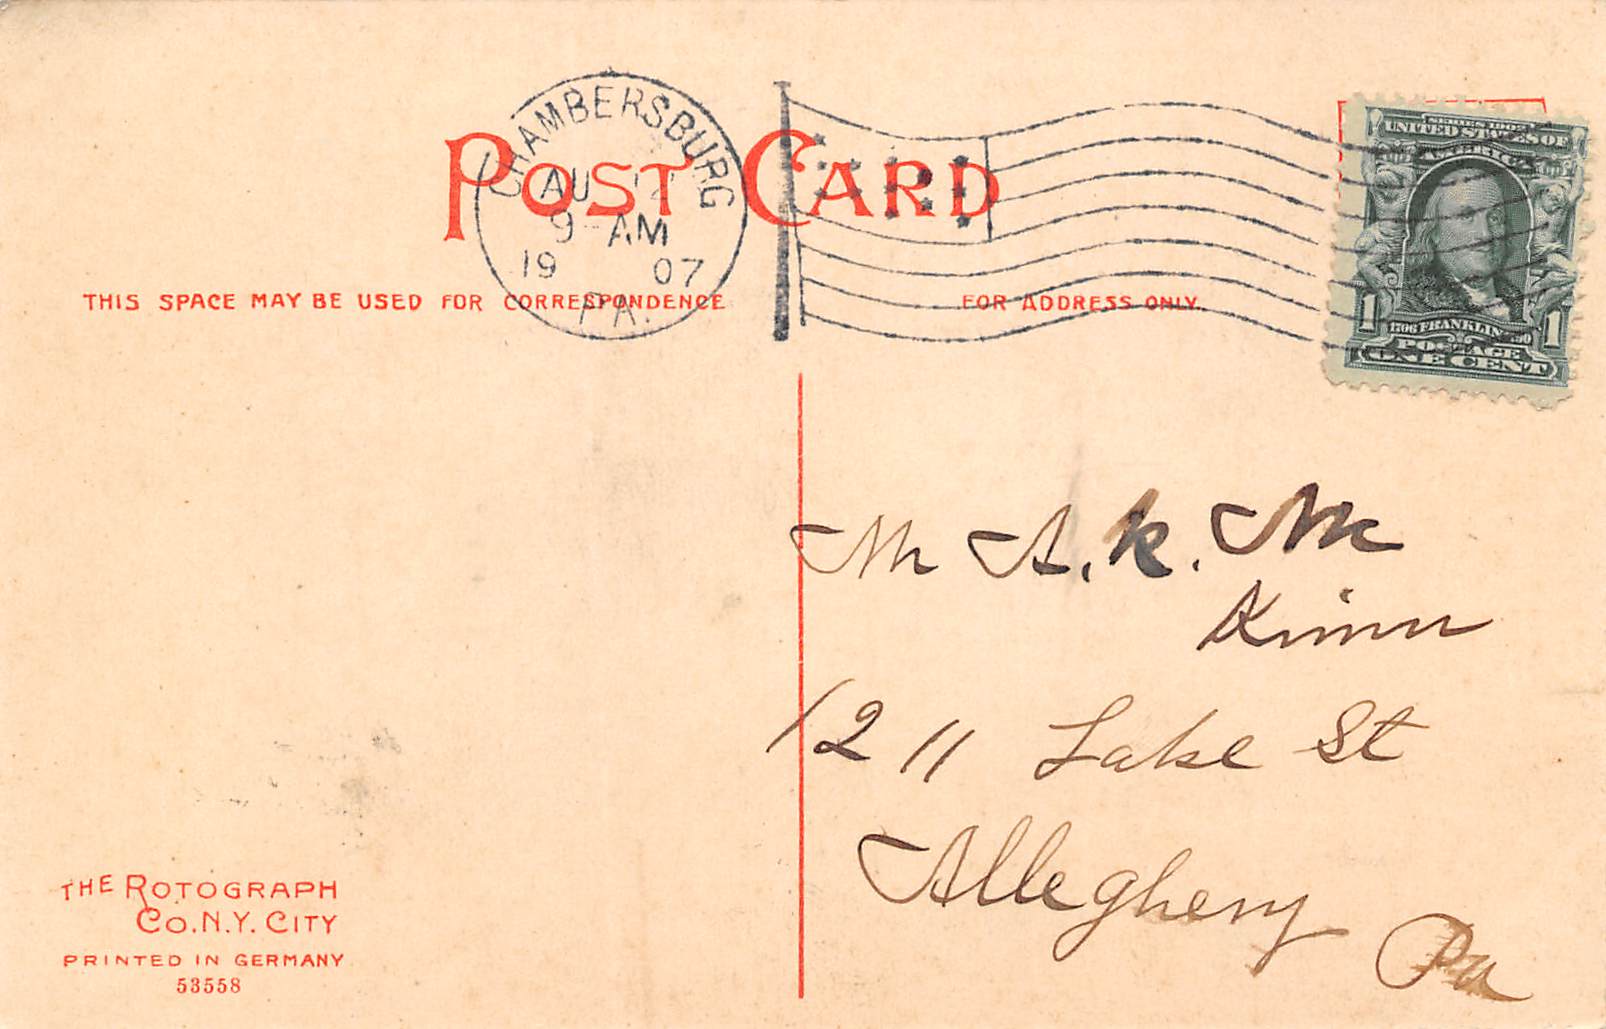 POST CARD
CHAMBERSBURG
AU
9 AM
19 07
PA.
THIS SPACE MAY BE USED FOR CORRESPONDENCE
FOR ADDRESS ONLY.
SERIES 1902
UNITED STATES OF
AMERICA
1706 FRANKLIN 1790
1 1
POSTAGE
ONE CENT
M A. K. Mc
Kinn
1211 Lake St
Allegheny
Pa
THE ROTOGRAPH
CO. N.Y. CITY
PRINTED IN GERMANY
53558